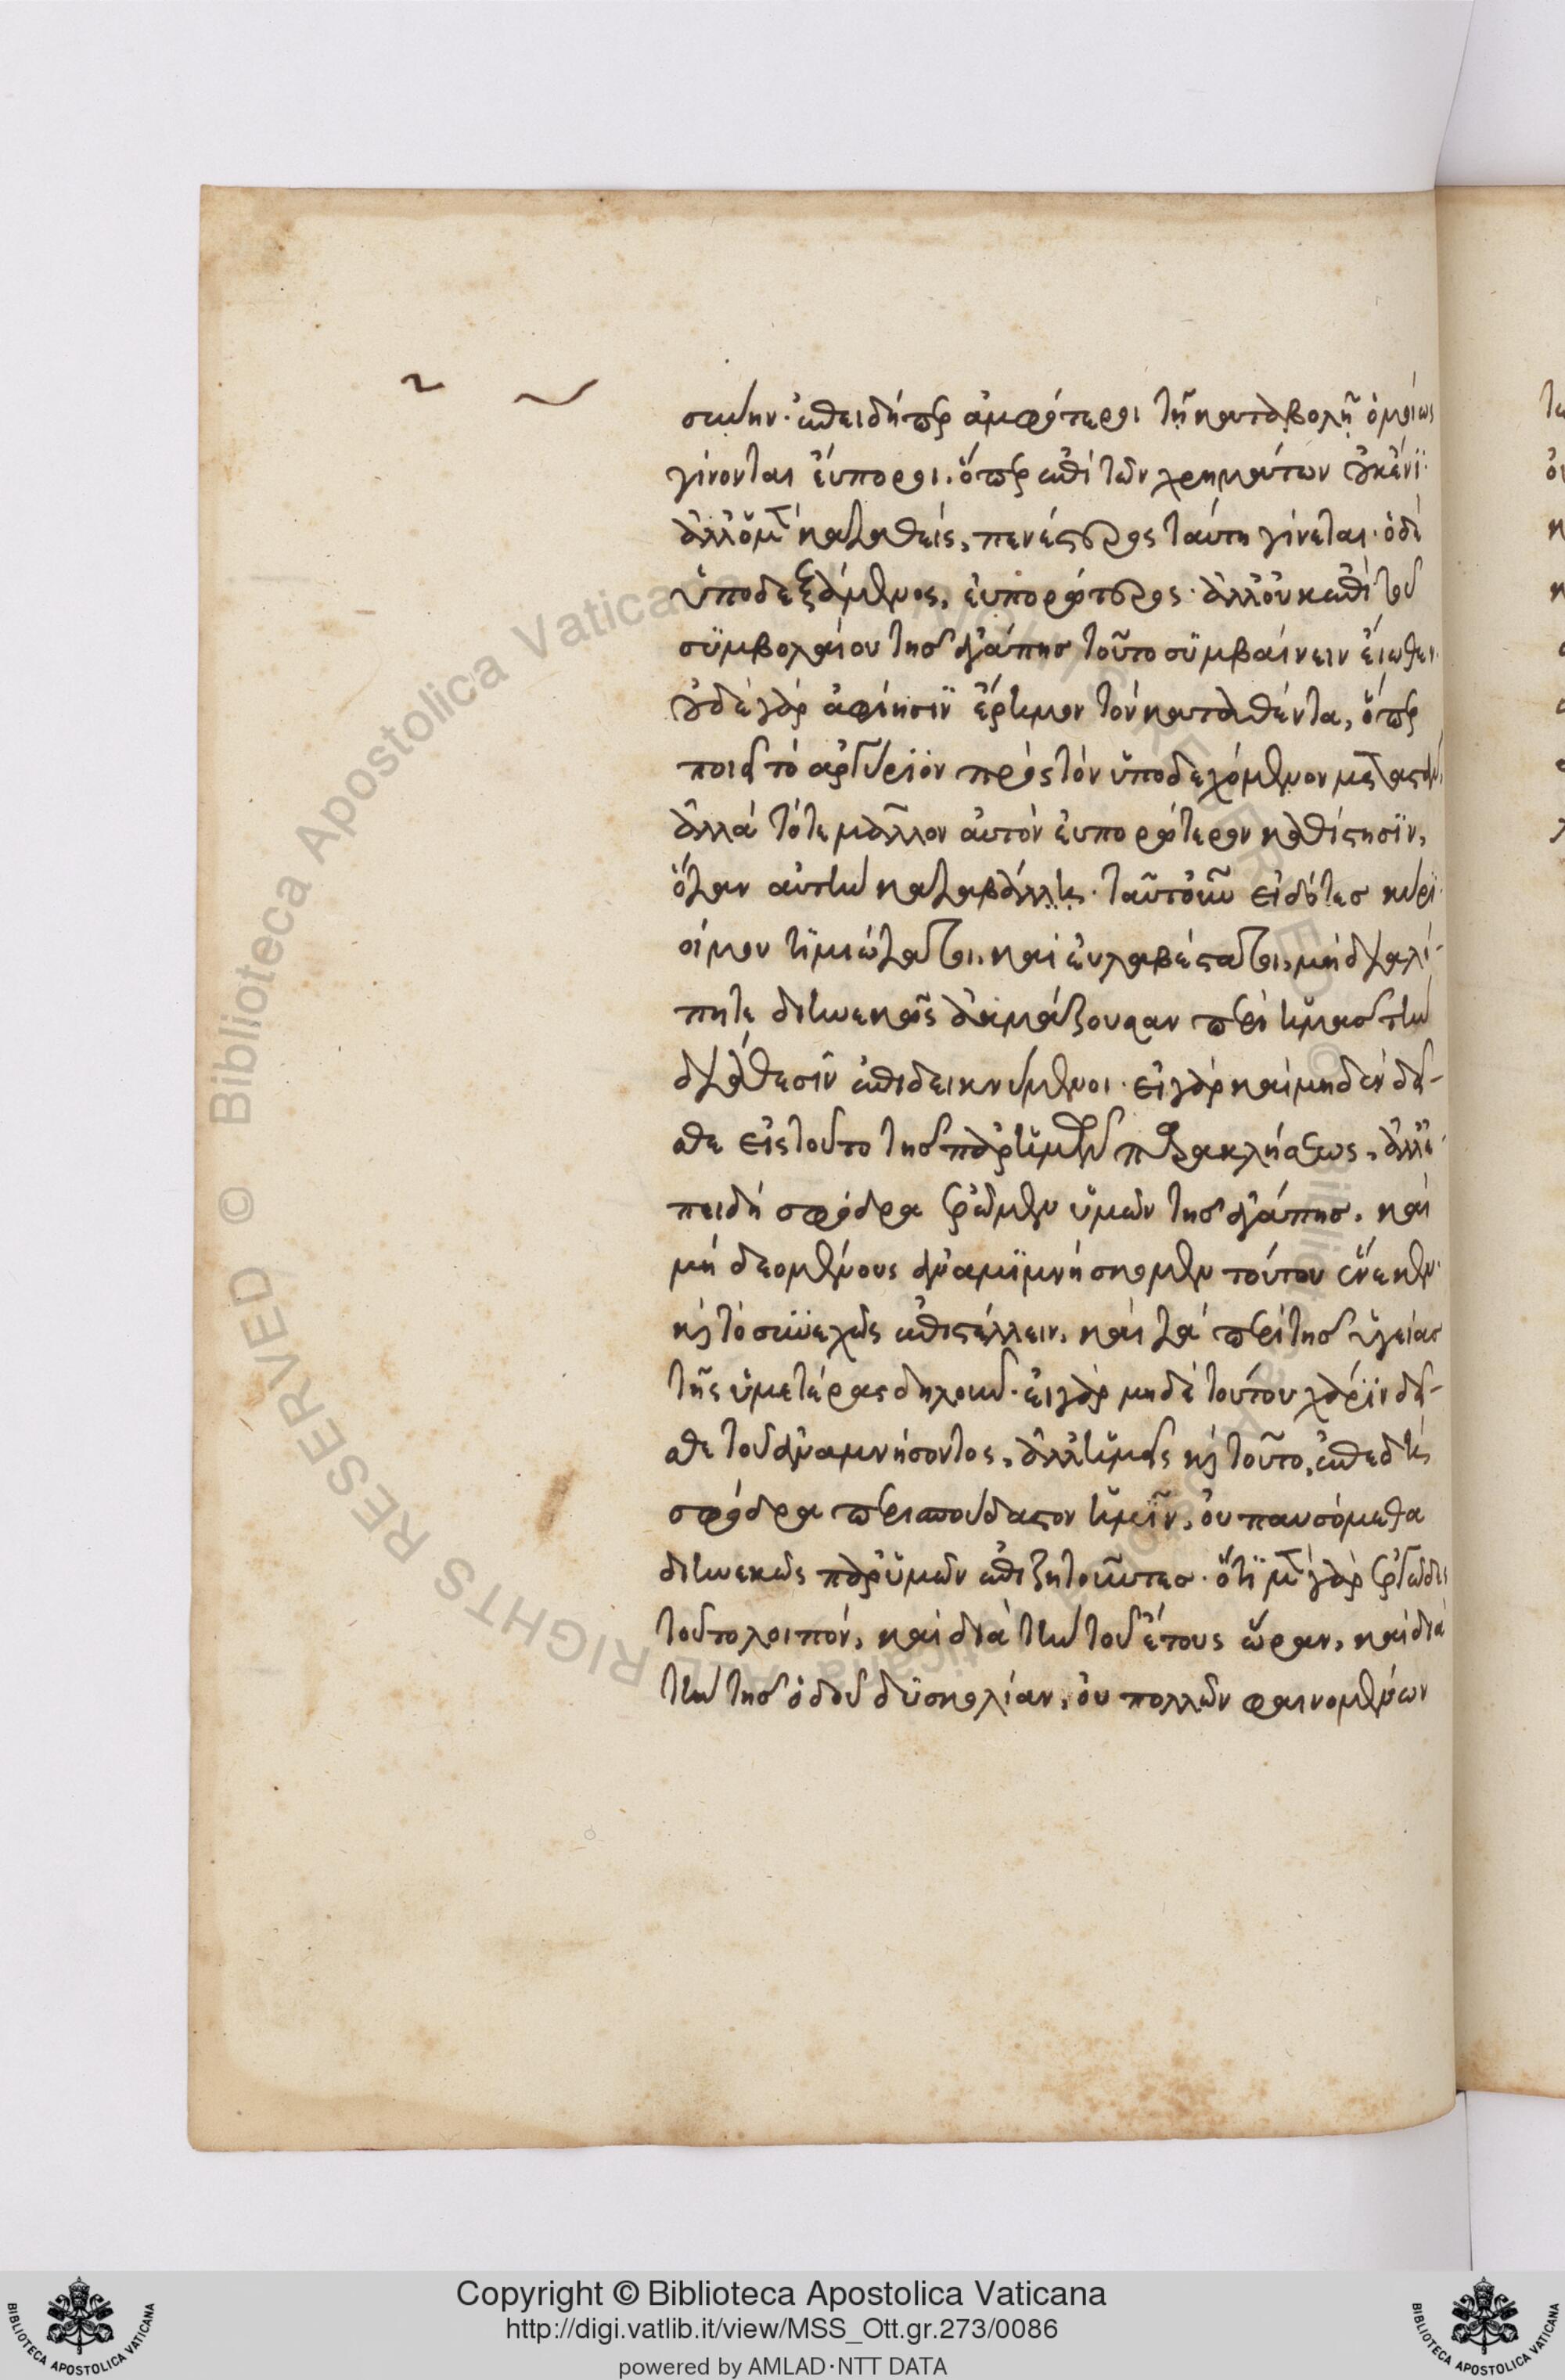 σύνην· ἐπειδήπερ ἀμφότεροι τῆ καταβολῆ ὁμοίως
γίνονται ἔυποροι. ὅπερ ἐπὶ τῶν χρημάτων οὐκ ἔνι·
ἀλλ' ὁ μὲν καταθεὶς, πενέστερος ταύτη γίνεται· ὁ δὲ
ὑποδεξάμενος, ἐυπορώτερος· ἀλλ' οὐκ ἐπὶ τοῦ
συμβολαίου τῆς ἀγάπης τοῦτο συμβαίνειν ἔιωθεν·
οὐδὲ γὰρ ἀφίησιν ἔρημον τὸν καταθέντα, ὅπερ
ποιεῖ τὸ ἀργύριον πρὸς τὸν ὑποδεχόμενον μεταστάν,
ἀλλὰ τότε μᾶλλον αὐτὸν ἐυπορώτερον καθίστησιν,
ὅταν αὐτὴν καταβάλλη. ταῦτ' οὖν εἰδότες κύρι
οί μου τιμιώτατοι, καὶ ἐυλαβέστατοι, μὴ διαλί-
πητε διηνεκῶς ἀκμάζουσαν περὶ ἡμᾶς τὴν
διάθεσιν ἐπιδεικνύμενοι· εἰ γὰρ καὶ μηδὲν δεῖ-
σθε εἰς τοῦτο τῆς παρ' ἡμῶν παρακλήσεως, ἀλλ' ἐ-
πειδὴ σφόδρα ἐρῶμεν ὑμῶν τῆς ἀγάπης, καὶ
μὴ δεομένους ἀναμιμνήσκομεν τούτου ἕνεκεν·
καὶ τὸ συνεχῶς ἐπιστέλλειν, καὶ τὰ περὶ τῆς ὑγείας
τῆς ὑμετέρας δηλοῦν· ἐι γὰρ μηδὲ τούτου χάριν δεῖ-
σθε τοῦ ἀναμνήσοντος, ἀλλ' ἡμεῖς καὶ τοῦτο, ἐπειδὴ
σφόδρα περισπούδαστον ἡμῖν, ὀυ παυσόμεθα
διηνεκῶς παρ' ὑμῶν ἐπιζητοῦντες· ὅτι μὲν γὰρ ἐργῶδες
τοῦτο λοιπόν, καὶ διὰ τὴν τοῦ ἔτους ὥραν, καὶ διὰ
τὴν τῆς ὁδοῦ δυσκολίαν, ὀυ πολλῶν φαινομένων
Copyright © Biblioteca Apostolica Vaticana
http://digi.vatlib.it/view/MSS_Ott.gr.273/0086
powered by AMLAD·NTT DATA
BIBLIOTECA APOSTOLICA VATICANA
BIBLIOTECA APOSTOLICA VATICANA